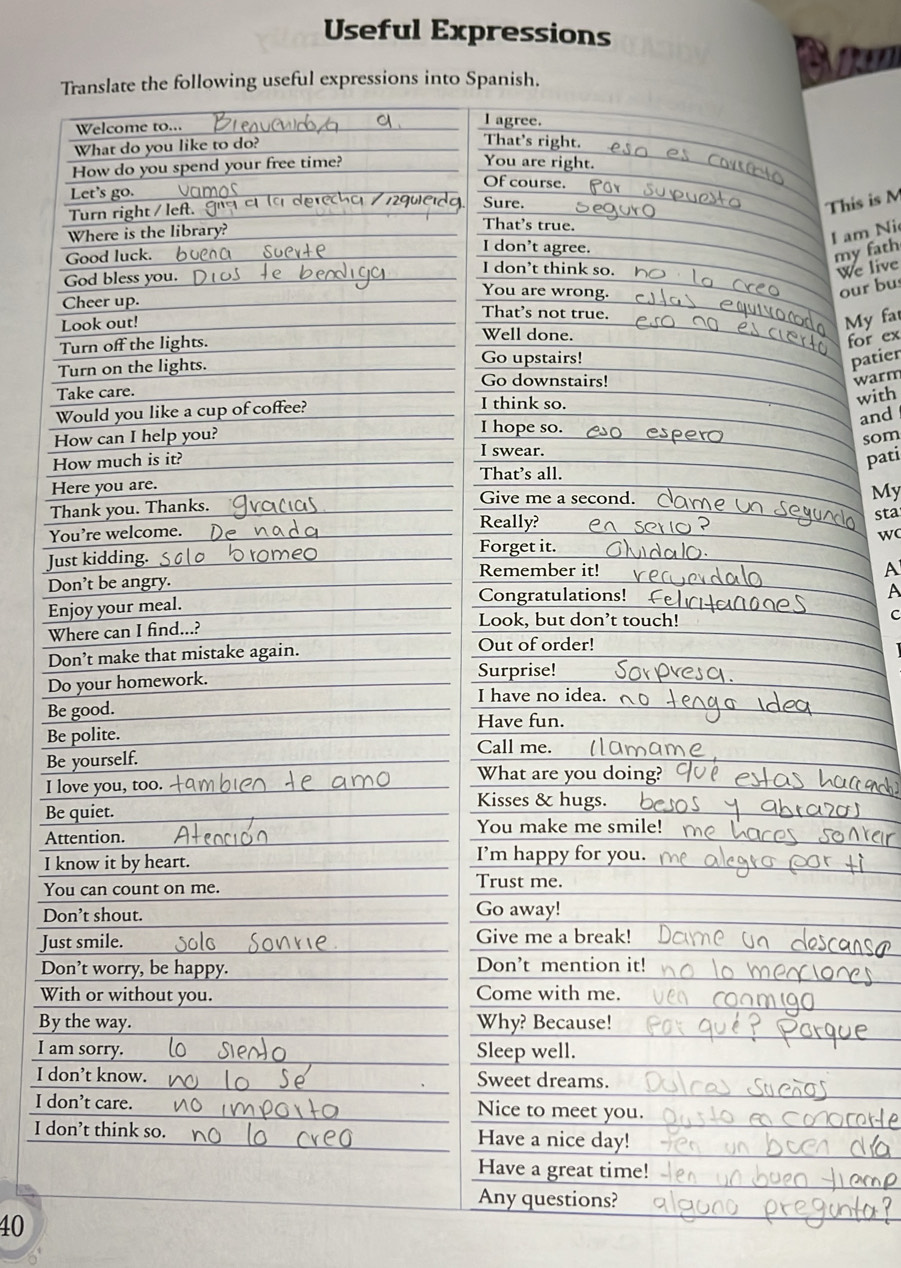 Useful Expressions
Translate the following useful expressions into Spanish.
Welcome to... Bienvenido/a a.
What do you like to do?
How do you spend your free time?
Let's go. vamos
Turn right / left. gira a la derecha / izquierda.
Where is the library?
Good luck. buena suerte
God bless you. Dios te bendiga
Cheer up.
Look out!
Turn off the lights.
Turn on the lights.
Take care.
Would you like a cup of coffee?
How can I help you?
How much is it?
Here you are.
Thank you. Thanks. gracias
You're welcome. De nada
Just kidding. solo bromeo
Don't be angry.
Enjoy your meal.
Where can I find...?
Don't make that mistake again.
Do your homework.
Be good.
Be polite.
Be yourself.
I love you, too. tambien te amo
Be quiet.
Attention. Atención
I know it by heart.
You can count on me.
Don't shout.
Just smile. solo sonrie.
Don't worry, be happy.
With or without you.
By the way.
I am sorry. lo siento
I don't know. no lo sé
I don't care. no importa
I don't think so. no lo creo
I agree.
That's right. eso es correcto
You are right.
Of course. por supuesto
Sure. seguro
That's true.
I don't agree.
I don't think so. no lo creo
You are wrong. estas equivocado
That's not true. eso no es cierto
Well done.
Go upstairs!
Go downstairs!
I think so.
I hope so. eso espero
I swear.
That's all.
Give me a second. dame un segundo
Really? en serio?
Forget it. Olvidalo.
Remember it! recuerdalo
Congratulations! felicitaciones
Look, but don't touch!
Out of order!
Surprise! Sorpresa.
I have no idea. no tengo idea
Have fun.
Call me. llamame
What are you doing? qué estas haciendo
Kisses & hugs. besos y abrazos
You make me smile! me haces sonreir
I'm happy for you. me alegro por ti
Trust me.
Go away!
Give me a break! Dame un descanso
Don't mention it! no lo menciones
Come with me. ven conmigo
Why? Because! Por qué? Porque
Sleep well.
Sweet dreams. Dulces sueños
Nice to meet you. gusto en conocerte
Have a nice day! ten un buen día
Have a great time! ten un buen tiemp
Any questions? alguna pregunta?
40
This is M
I am Ni
my fath
We live
our bu
My fa
for ex
patier
warm
with
and
som
pati
My
sta
wo